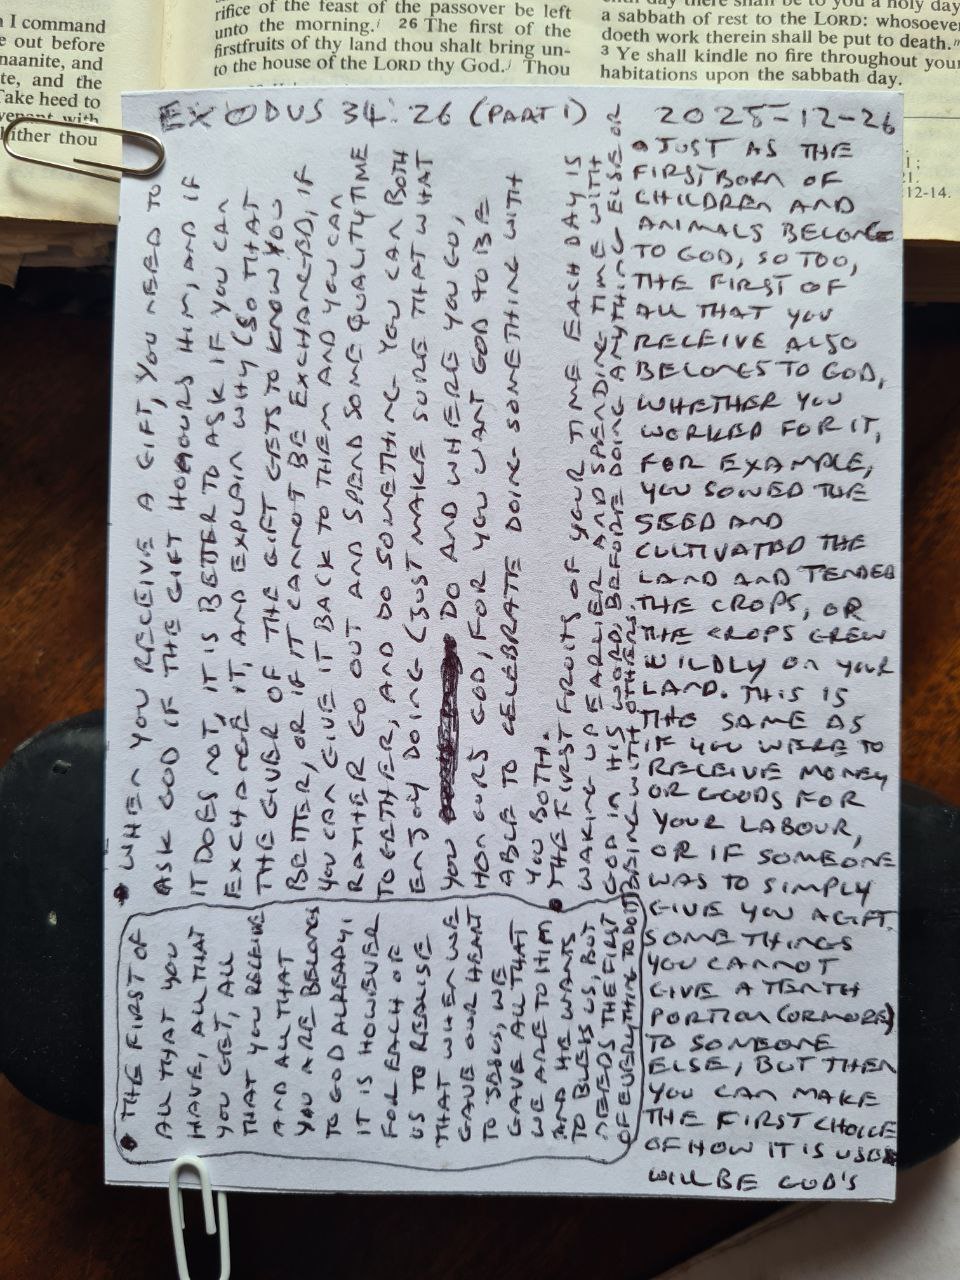 I command
e out before
naanite, and
te, and the
Take heed to
venant with
either thou
rifice of the feast of the passover be left
unto the morning. 26 The first of the
firstfruits of thy land thou shalt bring un-
to the house of the LORD thy God. Thou
a sabbath of rest to the LORD: whosoever
doeth work therein shall be put to death.
3 Ye shall kindle no fire throughout your
habitations upon the sabbath day.
12-14.
EXODUS 34:26 (PART 1) 2025-12-26
• JUST AS THE
FIRSTBORN OF
CHILDREN AND
ANIMALS BELONG
TO GOD, SO TOO,
THE FIRST OF
ALL THAT YOU
RECEIVE ALSO
BELONGS TO GOD,
WHETHER YOU
WORKED FOR IT,
FOR EXAMPLE,
YOU SOWED THE
SEED AND
CULTIVATED THE
LAND AND TENDED
THE CROPS, OR
THE CROPS GREW
WILDLY ON YOUR
LAND. THIS IS
THE SAME AS
IF YOU WERE TO
RECEIVE MONEY
OR GOODS FOR
YOUR LABOUR,
OR IF SOMEONE
WAS TO SIMPLY
GIVE YOU A GIFT.
SOME THINGS
YOU CANNOT
GIVE A TENTH
PORTION (OR MORE)
TO SOMEONE
ELSE, BUT THEN
YOU CAN MAKE
THE FIRST CHOICE
OF HOW IT IS USED
WILL BE GOD'S
• WHEN YOU RECEIVE A GIFT, YOU NEED TO
ASK GOD IF THE GIFT HONOURS HIM, AND IF
IT DOES NOT, IT IS BETTER TO ASK IF YOU CAN
EXCHANGE IT, AND EXPLAIN WHY (SO THAT
THE GIVER OF THE GIFT GETS TO KNOW YOU
BETTER, OR IF IT CANNOT BE EXCHANGED, IF
YOU CAN GIVE IT BACK TO THEM AND YOU CAN
RATHER GO OUT AND SPEND SOME QUALITY TIME
TOGETHER, AND DO SOMETHING YOU CAN BOTH
ENJOY DOING (JUST MAKE SURE THAT WHAT
YOU DO AND WHERE YOU GO,
HONOURS GOD, FOR YOU WANT GOD TO BE
ABLE TO CELEBRATE DOING SOMETHING WITH
YOU BOTH.
• THE FIRST FRUITS OF YOUR TIME EACH DAY IS
WAKING UP EARLIER AND SPENDING TIME WITH
GOD IN HIS WORD, BEFORE DOING ANYTHING ELSE OR
BASING WITH OTHERS.
• THE FIRST OF
ALL THAT YOU
HAVE, ALL THAT
YOU GET, ALL
THAT YOU RECEIVE
AND ALL THAT
YOU ARE BELONGS
TO GOD ALREADY;
IT IS HOWEVER
FOR EACH OF
US TO REALISE
THAT WHEN WE
GAVE OUR HEART
TO JESUS, WE
GAVE ALL THAT
WE ARE TO HIM
AND HE WANTS
TO BLESS US, BUT
NEEDS THE FIRST
OF EVERYTHING TO DO IT